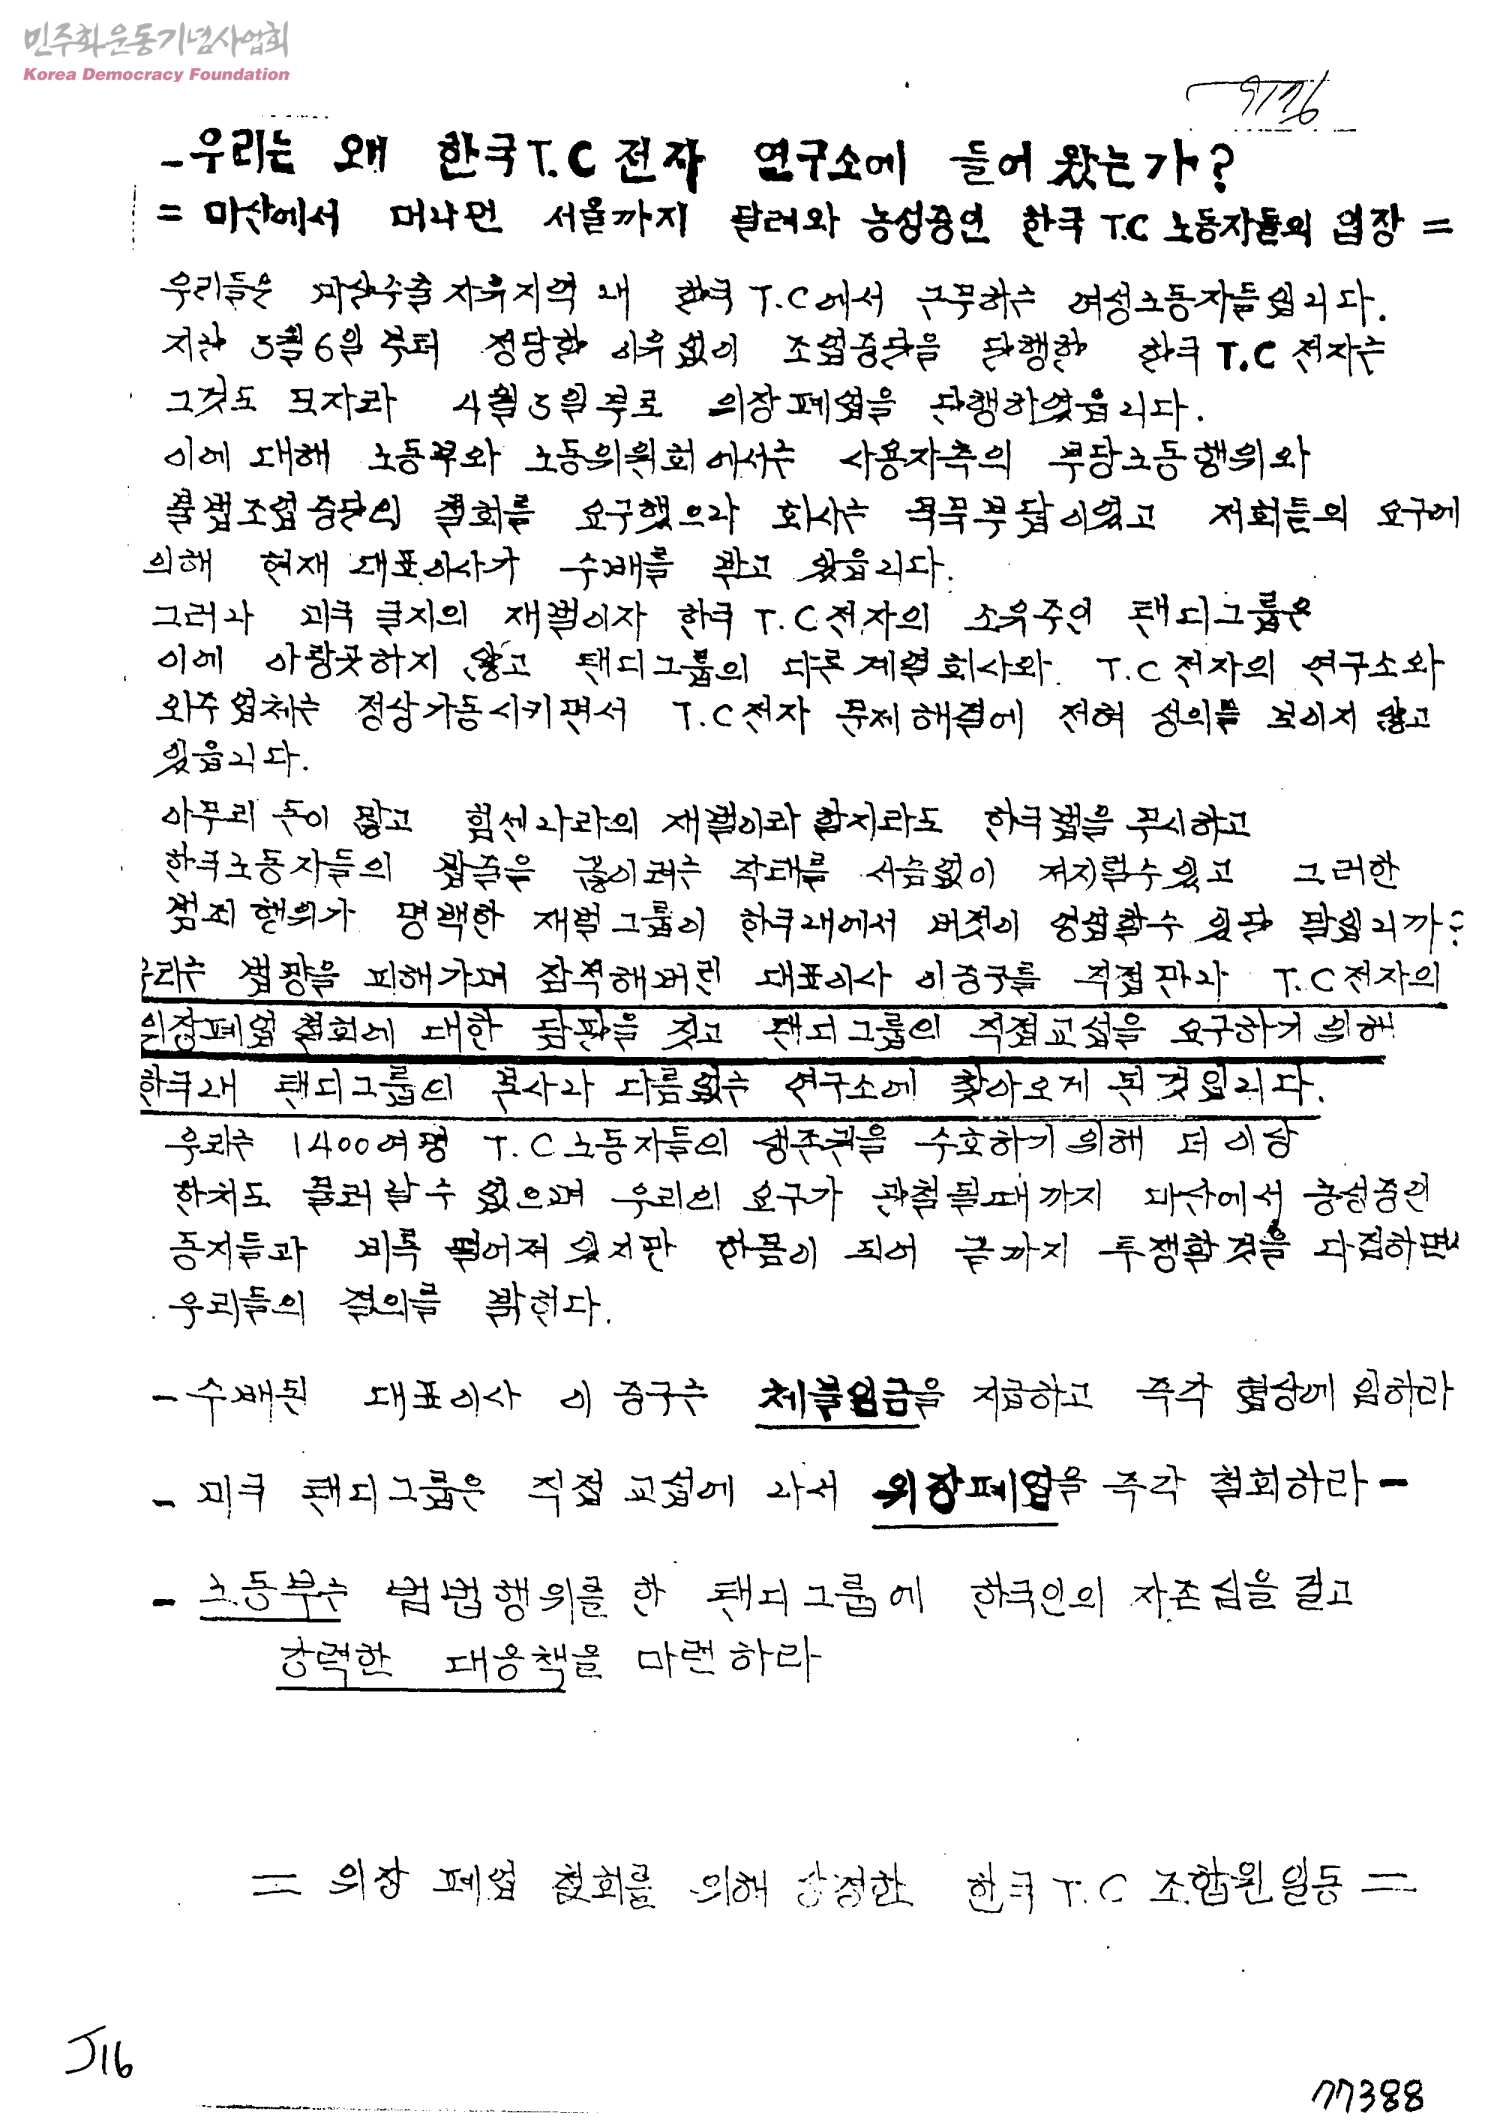 민주화운동기념사업회
Korea Democracy Foundation
- 우리는 왜 한국 T.C 전자 연구소에 들어 왔는가?
= 마산에서 머나먼 서울까지 달려와 농성중인 한국 T.C 노동자들의 입장 =
우리들은 마산수출자유지역 내 한국 T.C에서 근무하는 여성노동자들입니다.
지난 3월 6일 부터 정당한 이유없이 조업중단을 단행한 한국 T.C 전자는
그것도 모자라 4월 5일부로 위장폐업을 단행하였읍니다.
이에 대해 노동부와 노동위원회에서는 사용자측의 부당노동행위와
불법조업중단의 철회를 요구했으나 회사는 묵묵부답이었고 저희들의 요구에
의해 현재 대표이사가 수배를 받고 있읍니다.
그러나 미국 굴지의 재벌이자 한국 T.C전자의 소유주인 탠디그룹은
이에 아랑곳하지 않고 탠디그룹의 다른 계열회사와 T.C전자의 연구소와
외주업체는 정상가동시키면서 T.C전자 문제해결에 전혀 성의를 보이지 않고
있읍니다.
아무리 돈이 많고 힘센 나라의 재벌이라 할지라도 한국법을 무시하고
한국노동자들의 밥줄을 끊으려는 작태를 서슴없이 저지를수있고 그러한
범죄행위가 명백한 재벌그룹이 한국내에서 버젓이 영업할수 있단 말입니까?
우리는 법망을 피해가며 잠적해버린 대표이사 이중구를 직접만나 T.C전자의
위장폐업 철회에 대한 담판을 짓고 탠디그룹의 직접교섭을 요구하기 위해
한국내 탠디그룹의 본사나 다름없는 연구소에 찾아오게 된것입니다.
우리는 1400여명 T.C노동자들의 생존권을 수호하기 위해 더 이상
한치도 물러 날수 없으며 우리의 요구가 관철될때까지 마산에서 농성중인
동지들과 비록 떨어져 있지만 한몸이 되어 끝까지 투쟁할 것을 다짐하면서
우리들의 결의를 밝힌다.
- 수배된 대표이사 이중구는 체불임금을 지급하고 즉각 협상에 임하라
- 미국 탠디그룹은 직접 교섭에 나서 위장폐업을 즉각 철회하라 -
- 노동부는 범법행위를 한 탠디그룹에 한국인의 자존심을 걸고
강력한 대응책을 마련하라
= 위장 폐업 철회를 위해 상경한 한국 T.C 조합원일동 =
J16
77388